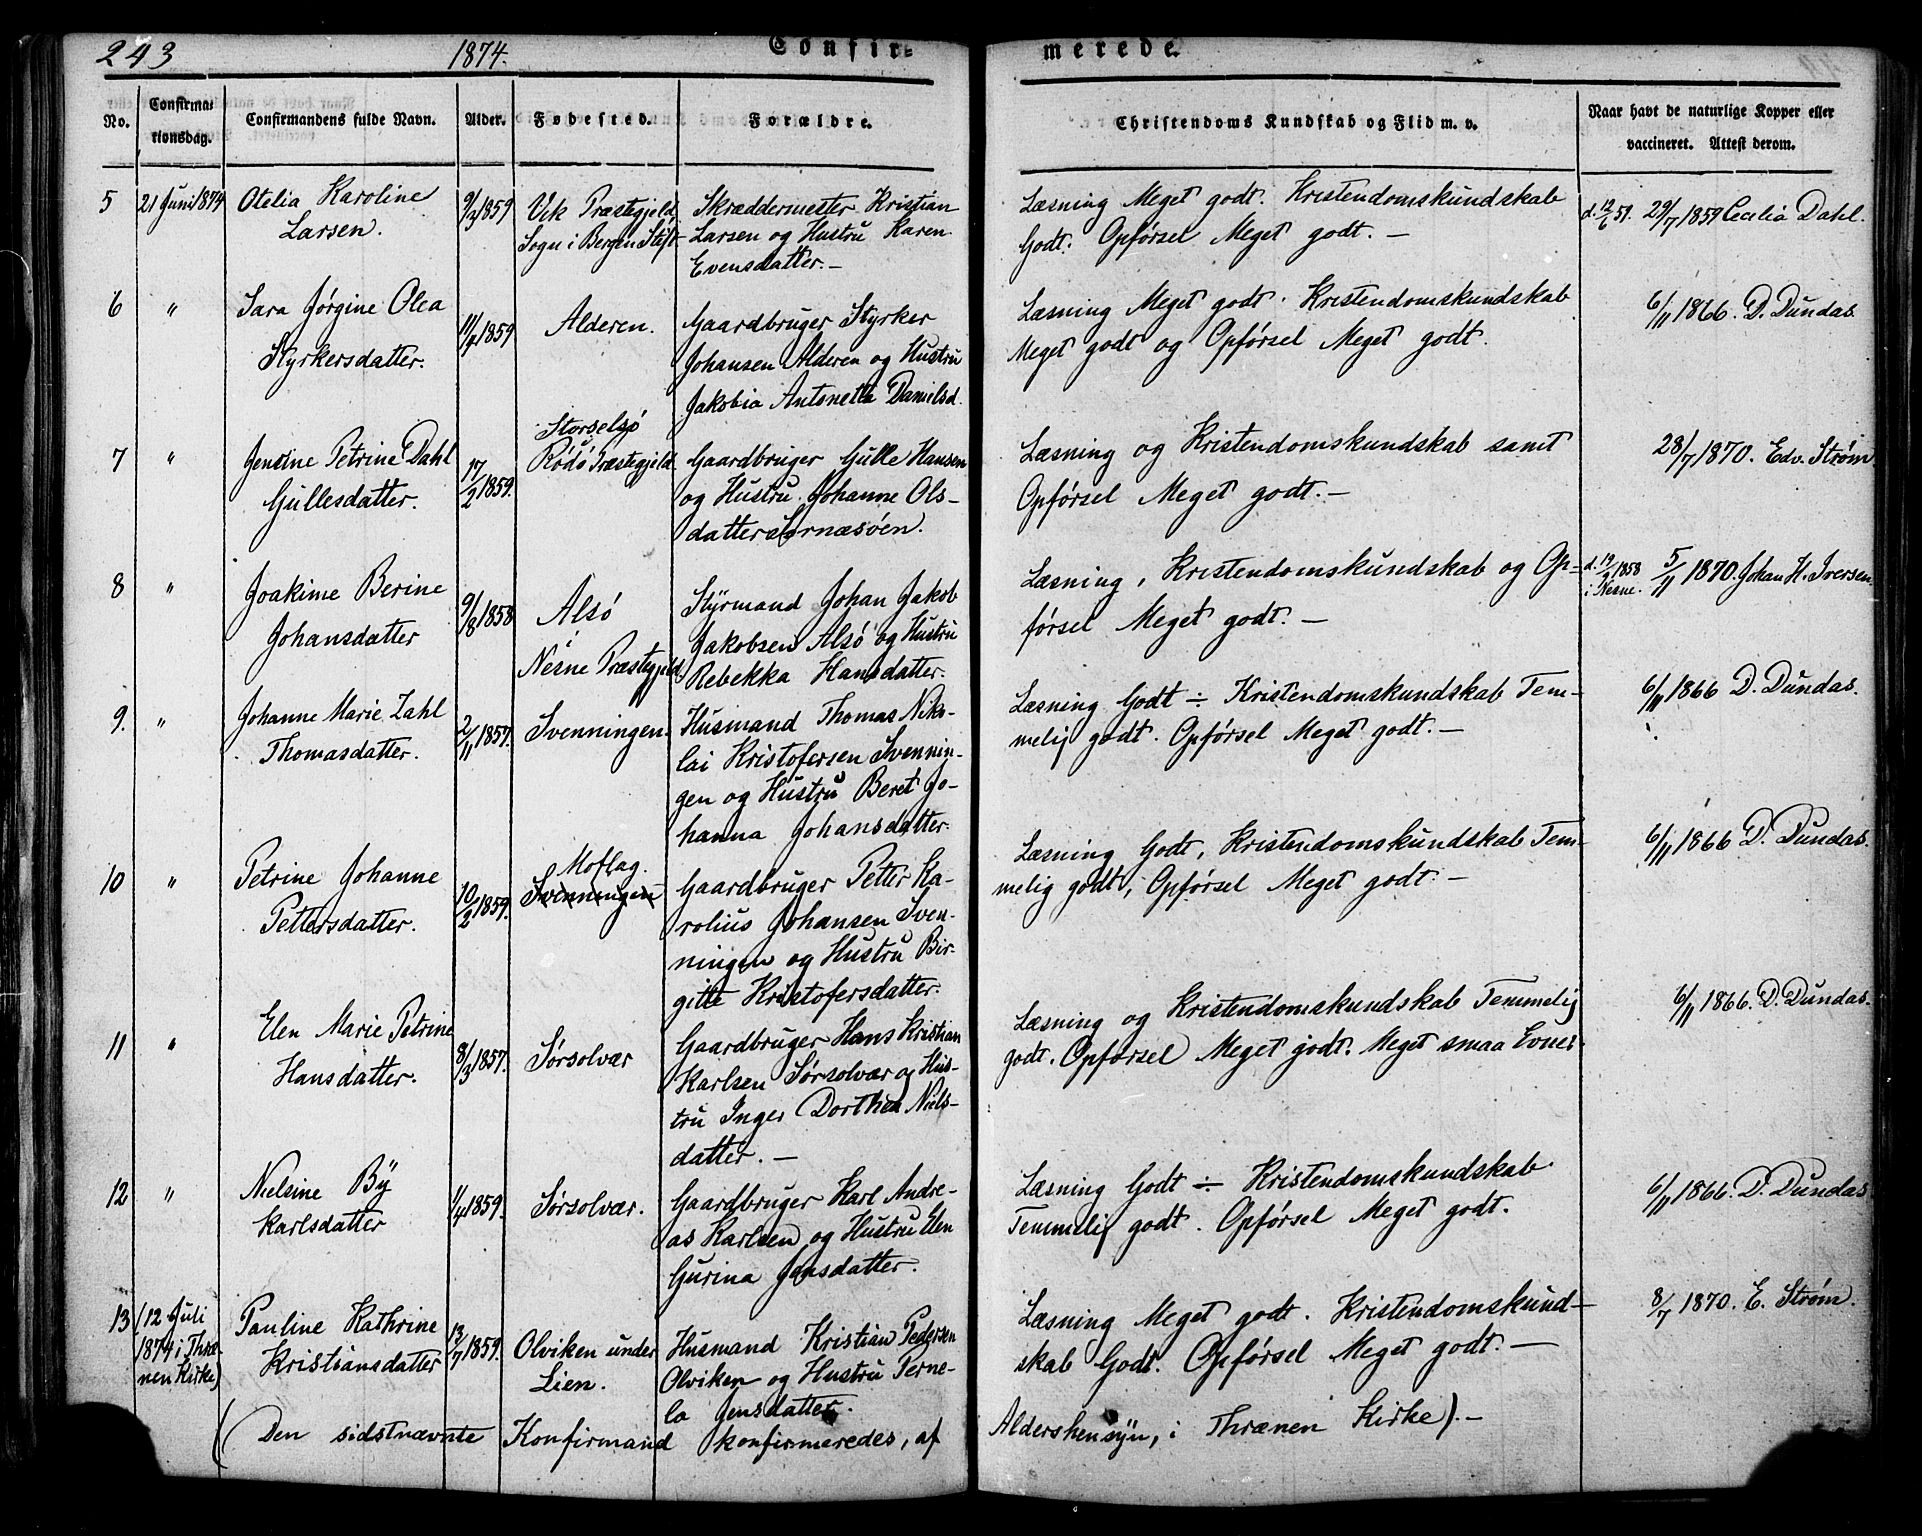 243 1874. Confir- merede.
No. Confirmationsdag. Confirmandens fulde Navn. Alder. Fødested. Forældre. Christendoms Kundskab og Flid m. v. Naar havt de naturlige Kopper eller vaccineret. Attest derom.
5 21 Juni 1874 Otelia Karoline 9/3 1859 Vik Præstegjeld, Skræddermester Kristian Læsning Meget godt. Kristendomskundskab d. 12/6 59. 29/7 1859 Cecilia Dahl.
Larsen. Sogn i Bergen Stift Larsen og Hustru Karen Godt. Opførsel Meget godt. –
Evensdatter. –
6 " Sara Jørgine Olea 11/4 1859 Alderen. Gaardbruger Styrker Læsning Meget godt. Kristendomskundskab 6/11 1866. D. Dundas.
Styrkersdatter. Johansen Alderen og Hustru Meget godt og Opførsel Meget godt.
Jakobia Antonetta Danielsd.
7 " Jensine Petrine Dahl 17/2 1859. Storselsø Gaardbruger Gulle Hansen Læsning og Kristendomskundskab samt 28/7 1870. Edv. Strøm
Gullesdatter. Rødø Præstegjeld og Hustru Johanne Ols- Opførsel Meget godt. –
datter Sørnæsøen.
8 " Joakime Berine 9/8 1858 Alsø Styrmand Johan Jakob Læsning, Kristendomskundskab og Op= d. 19/9 1858 i Nesne. 5/11 1870. Johan H. Iversen.
Johansdatter Nesne Præstegjeld. Jakobsen Alsø og Hustru førsel Meget godt. –
Rebekka Hansdatter.
9. " Johanne Marie Zahl 2/11 1857. Svenningen. Husmand Thomas Niko- Læsning Godt ÷ Kristendomskundskab Tem- 6/11 1866 D. Dundas.
Thomasdatter. lai Kristofersen Svennin- melig godt. Opførsel Meget godt. –
gen og Hustru Beret Jo-
hanna Johansdatter.
10 " Petrine Johanne 10/2 1859. Moflag. Gaardbruger Petter Ka- Læsning Godt, Kristendomskundskab Tem- 6/11 1866 D. Dundas.
Pettersdatter. Svenningen rolius Johansen Sven- melig godt, Opførsel Meget godt. –
ningen og Hustru Bir-
gitte Kristofersdatter.
11 " Elen Marie Petrine 8/3 1857. Sørsolvær Gaardbruger Hans Kristian Læsning og Kristendomskundskab Temmelig 6/11 1866. D. Dundas.
Hansdatter. Karlsen Sørsolvær og Hus- godt. Opførsel Meget godt. Meget smaa Evner.
tru Inger Dorthea Niels-
datter. –
12 " Nielsine By 1/4 1859. Sørsolvær. Gaardbruger Karl Andre- Læsning Godt ÷ Kristendomskundskab 6/11 1866. D. Dundas
Karlsdatter as Karlsen og Hustru Elen Temmelig godt. Opførsel Meget godt.
Gurina Jensdatter.
13 (12 Juli 1874 i Thrænen Kirke) Pauline Kathrine 13/7 1859. Olviken under Husmand Kristian Pedersen Læsning Meget godt. Kristendomskund- 8/7 1870. E. Strøm.
Kristiansdatter Lien. Olviken og Hustru Perne- skab Godt. Opførsel Meget godt. –
la Jensdatter.
(Den sidstnævnte Konfirmand konfirmeredes, af Aldershensyn, i Thrænen Kirke). –